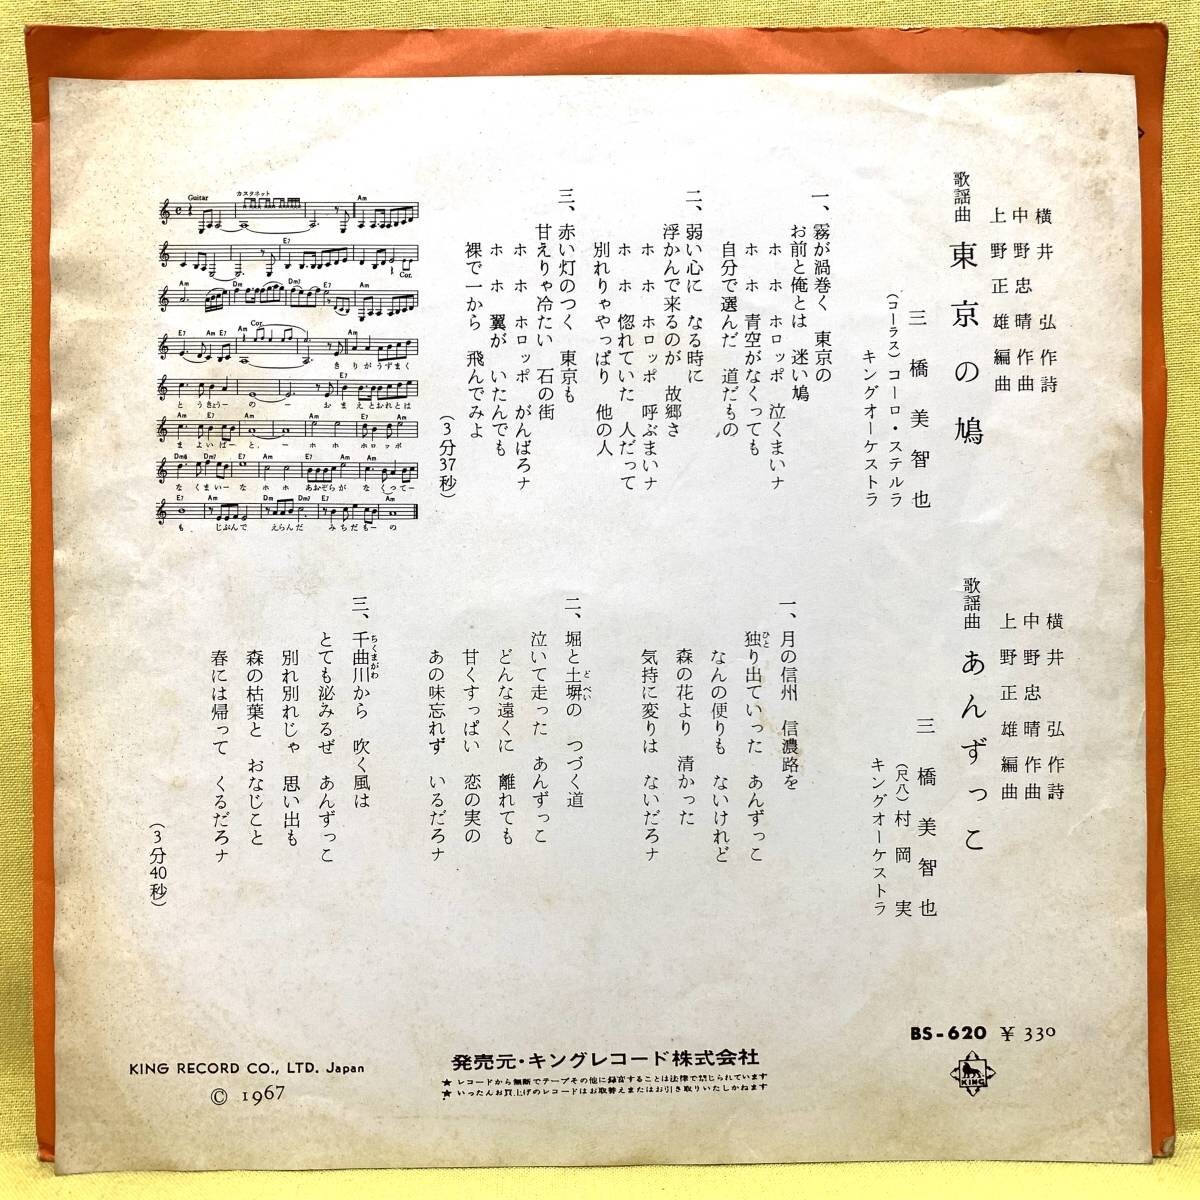 歌謡曲 東京の鳩
横井 弘 作詩
中野忠晴 作曲
上野正雄 編曲
三橋美智也
(コーラス) コーロ・ステルラ
キングオーケストラ
一、霧が渦巻く 東京の
お前と俺とは 迷い鳩
ホ ホ ホロッポ 泣くまいナ
ホ ホ 青空がなくっても
自分で選んだ 道だもの
二、弱い心に なる時に
浮かんで来るのが 故郷さ
ホ ホ ホロッポ 呼ぶまいナ
ホ ホ 惚れていた 人だって
別れりゃやっぱり 他の人
三、赤い灯のつく 東京も
甘えりゃ冷たい 石の街
ホ ホ ホロッポ がんばろナ
ホ ホ 翼が いたんでも
裸で一から 飛んでみよ
(3分37秒)
Guitar カスタネット Am
E7 Cor.
Am Dm Dm7 Am
E7 Am E7 Am Cor. E7 Am
きりがうずまく
E7
とうきょうーのー おまえとおれとは
Am E7 Am Am
まよいばーとーー ホホ ホロッポ
Dm6 E7 Am E7
なくまいーなホホ あおぞらが なくってー
E7 Am Dm Dm7 E7 Am
も じぶんで えらんだ みちだもーの
歌謡曲 あんずっこ
横井 弘 作詩
中野忠晴 作曲
上野正雄 編曲
三橋美智也
(尺八) 村岡 実
キングオーケストラ
一、月の信州 信濃路を
独り出ていった あんずっこ
ひと
なんの便りも ないけれど
森の花より 清かった
気持に変りは ないだろナ
二、堀と土塀の つづく道
どべい
泣いて走った あんずっこ
どんな遠くに 離れても
甘くすっぱい 恋の実の
あの味忘れず いるだろナ
三、千曲川から 吹く風は
ちくまがわ
とても泌みるぜ あんずっこ
別れ別れじゃ 思い出も
森の枯葉と おなじこと
春には帰って くるだろナ
(3分40秒)
BS-620 ¥330
KING
発売元・キングレコード株式会社
★レコードから無断でテープその他に録音することは法律で禁じられています
★いったんお買上げのレコードはお取替えまたはお引き取りいたしかねます
KING RECORD CO., LTD. Japan
© 1967